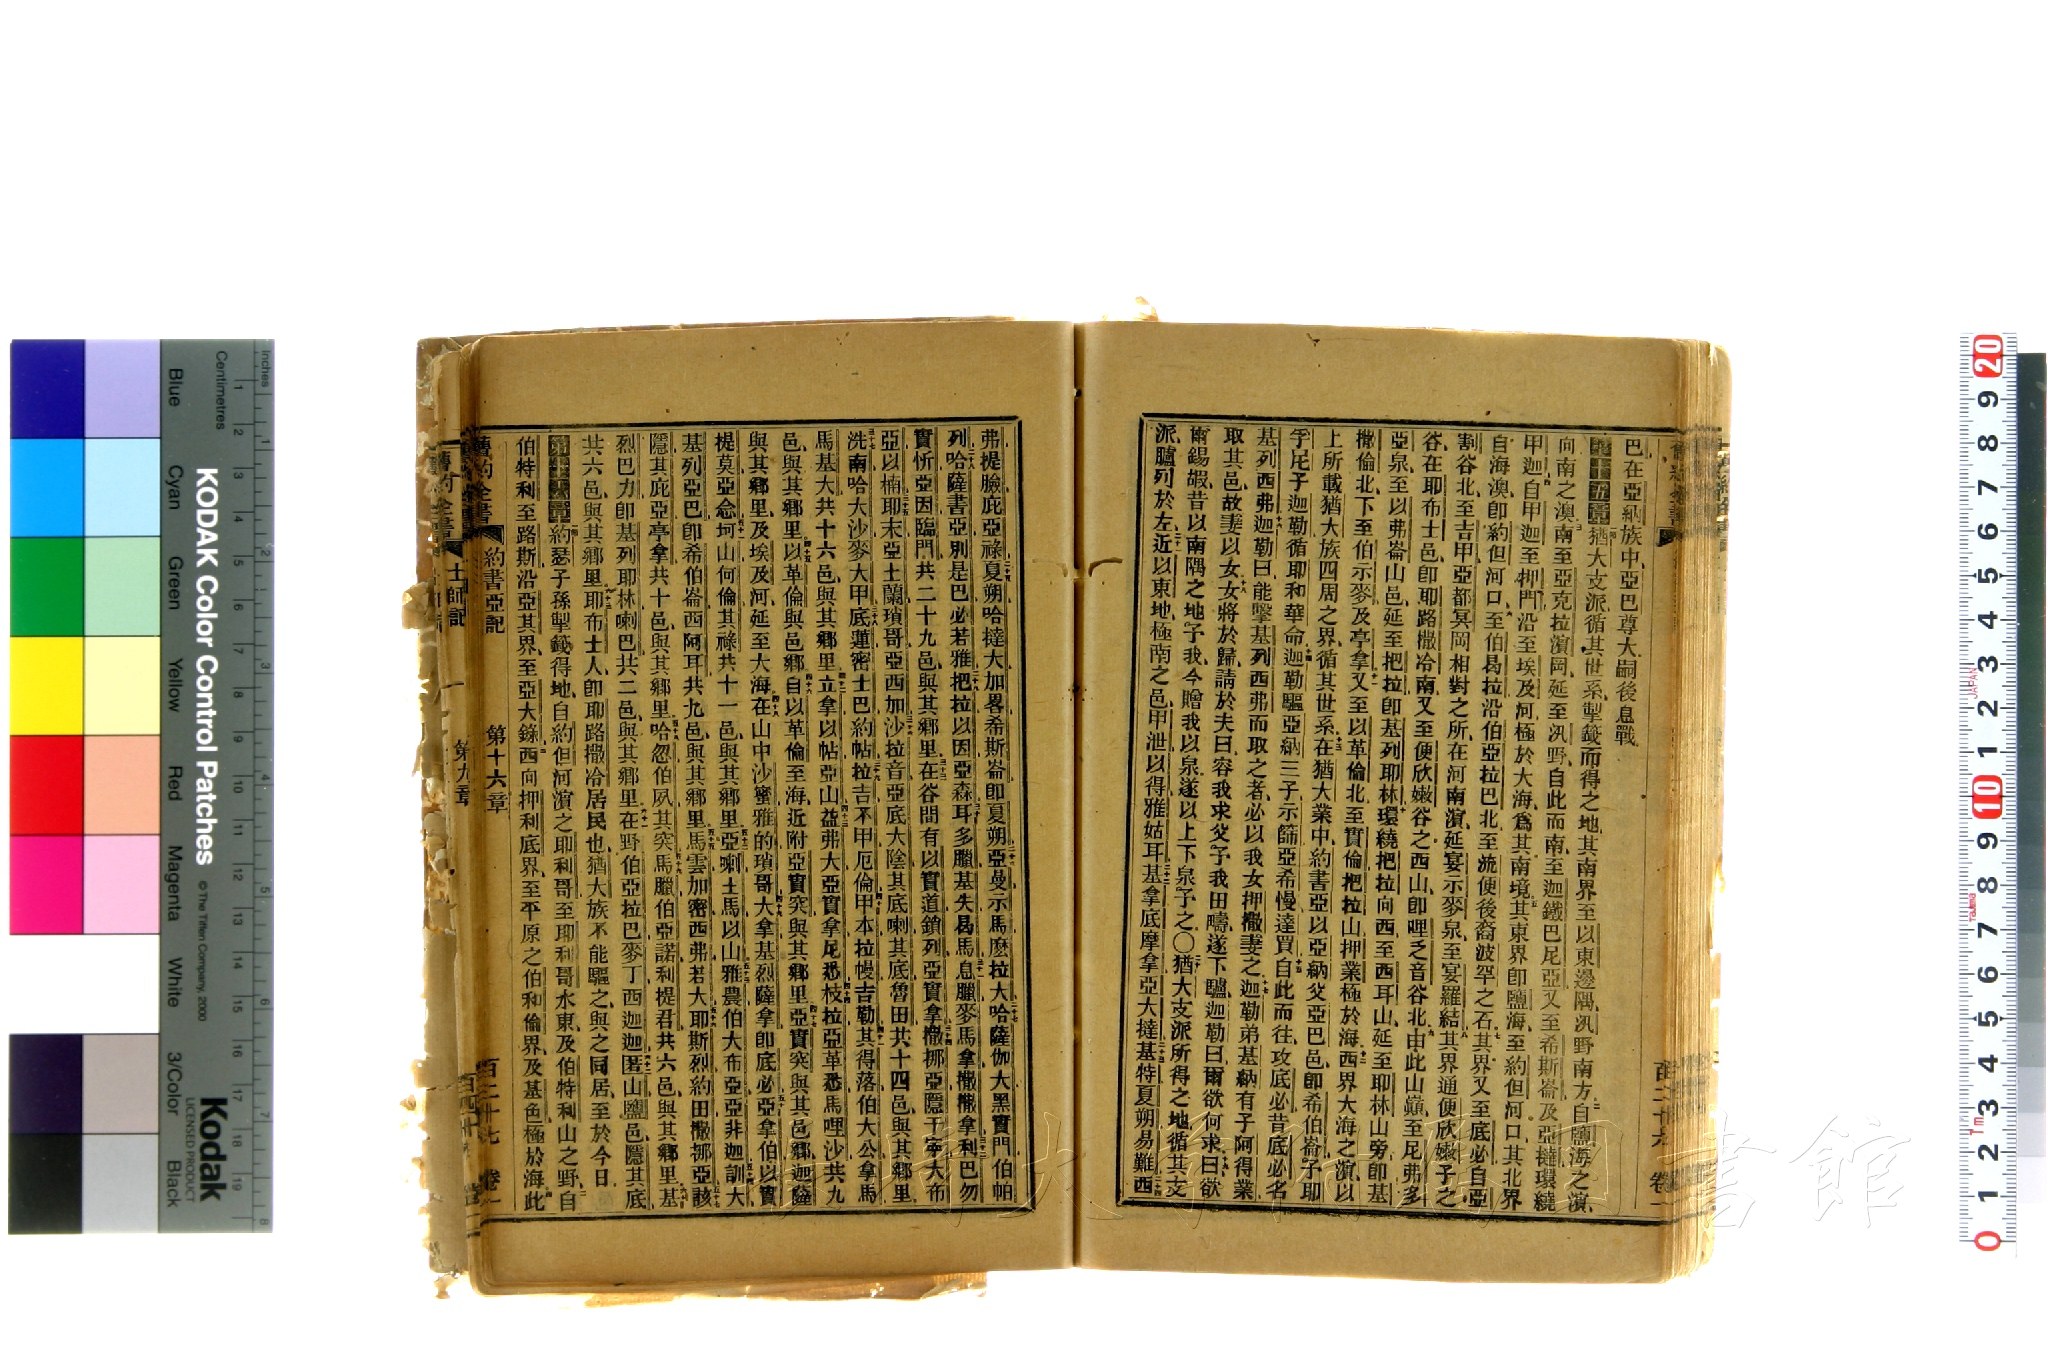 巴在亞納族中亞巴尊大嗣後息戰
第十五章猶大支派循其世系掣籤而得之地其南界至以東邊隅汛野南方自鹽海之濱
向南之澳南至亞克拉濱岡延至汛野自此而南至迦鐵巴尼亞又至希斯崙及亞撻環繞
甲迦自甲迦至押門沿至埃及河極於大海爲其南境其東界卽鹽海至約但河口其北界
自海澳卽約但河口至伯曷拉沿伯亞拉巴北至流便後裔波罕之石其界又至底必自亞
割谷北至吉甲亞都冥岡相對之所在河南濱延宴示麥泉至宴羅結其界通便欣嫩子之
谷在耶布士邑卽耶路撒冷南又至便欣嫩谷之西山卽哩乏音谷北由此山巔至尼弗多
亞泉至以弗崙山邑延至把拉卽基列耶林環繞把拉向西至西耳山延至耶林山旁卽基
撒倫北下至伯示麥及亭拿又至以革倫北至實倫把拉山押業極於海西界大海之濱以
上所載猶大族四居之界循其世系在猶大業中約書亞以亞納父亞巴邑卽希伯崙子耶
孚尼子迦勒循耶和華命迦勒驅亞納三子示篩亞希慢達買自此而往攻底必昔底必名
基列西弗迦勒曰能擊基列西弗而取之者必以我女押撒妻之迦勒弟基納有子阿得業
取其邑故妻以女女將於歸請於夫曰容我求父予我田疇遂下驢迦勒曰爾欲何求曰欲
爾錫嘏昔以南隅之地予我今贈我以泉遂以上下泉予之〇猶大支派所得之地循其支
派臚列於左近以東地極南之邑甲泄以得雅姑耳基拿底摩拿亞大撻基特夏朔易難西
弗提臉庇亞祿夏朔哈撻大加畧希斯崙卽夏朔亞曼示馬麽拉大哈薩伽大黑實門伯帕
列哈薩書亞別是巴必若雅把拉以因亞森耳多臘基失曷馬息臘麥馬拿撒撒拿利巴勿
實忻亞因臨門共二十九邑與其鄉里在谷間有以實道鎖列亞實拿撒挪亞隱干寧大布
亞以楠耶末亞土蘭瑣哥亞西加沙拉音亞底大陰其底喇其底魯田共十四邑與其鄉里
洗南哈大沙麥大甲底蓮密士巴約帖拉吉不甲厄倫甲本拉幔吉勒其得落伯大公拿馬
馬基大共十六邑與其鄉里立拿以帖亞山益弗大亞實拿尼悉枝拉亞革悉馬哩沙共九
邑與其鄉里以革倫與邑鄉自以革倫至海近附亞實突與其鄉里亞實突與其邑鄉迦薩
與其鄉里及埃及河延至大海在山中沙蜜雅的瑣哥大拿基烈薩拿卽底必亞拿伯以實
提莫亞念坷山何倫其祿共十一邑與其鄉里亞喇土馬以山雅農伯大布亞亞非迦訓大
基列亞巴卽希伯崙西阿耳共九邑與其鄉里馬雲加密西弗若大耶斯烈約田撒挪亞該
隱其庇亞亭拿共十邑與其鄉里哈忽伯夙其突馬臘伯亞諾利提君共六邑與其鄉里基
烈巴力卽基列耶林喇巴共二邑與其鄉里在野伯亞拉巴麥丁西迦迦匿山鹽邑隱其底
共六邑與其鄉里耶布士人卽耶路撒冷居民也猶大族不能驅之與之同居至於今日
第十六章約瑟子孫掣籤得地自約但河濱之耶利哥至耶利哥水東及伯特利山之野自
伯特利至路斯沿亞其界至亞大錄西向押利底界至平原之伯和倫界及基色極於海此
舊約全書 約書亞記 第十六章 百二十七 卷一
士師記 第九章
KODAK Color Control Patches
© The Tiffen Company, 2000
Kodak
LICENSED PRODUCT
Inches
Centimetres
Blue
Cyan
Green
Yellow
Red
Magenta
White
3/Color
Black
JAPAN
書館